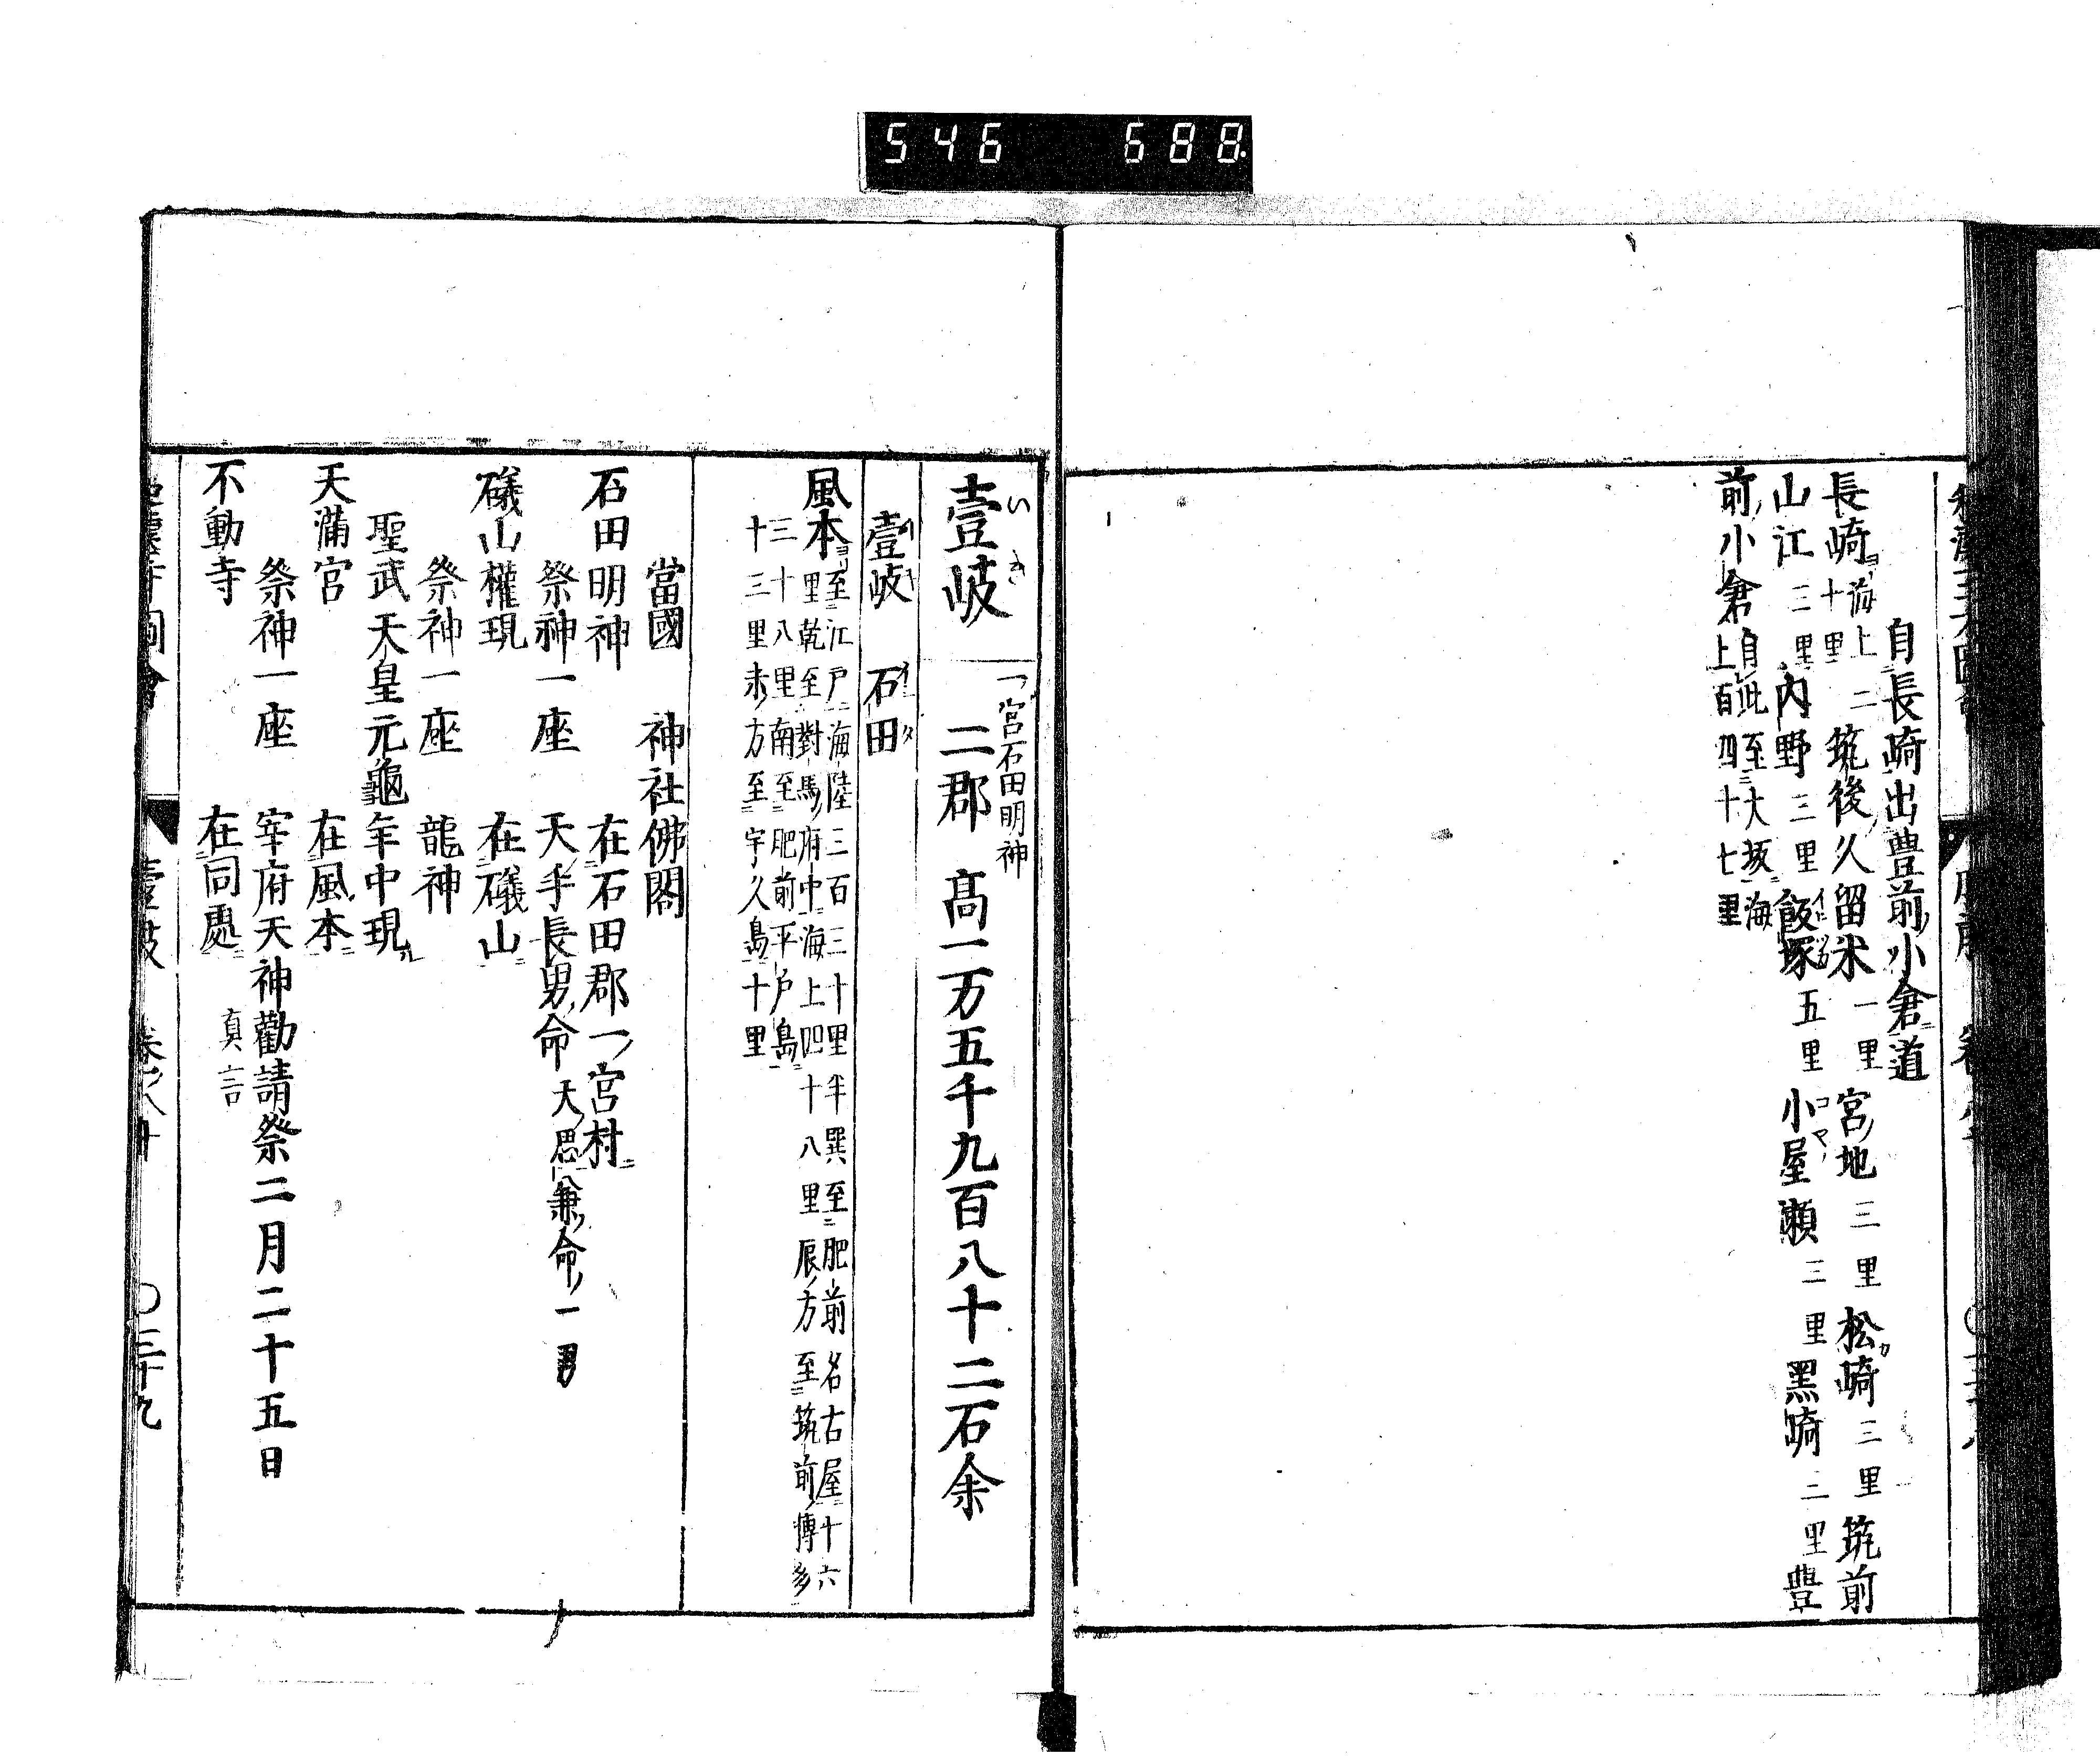 546 688
自長崎出豊前小倉道
長崎ヨリ海上二十里 筑後久留米 一里 宮地 三里 松崎 三里 筑前
山江 二里 内野 三里 飯塚 五里 小屋瀬 三里 黒崎 三里 豊
前小倉 自此至大坂海上百四十七里
壹岐 いき
一宮石田明神
二郡 高一万五千九百八十二石余
壹岐 石田
風本ヨリ 至江戸海陸三百三十里半巽至肥前名古屋十六
里乾至對馬府中海上四十八里辰方至筑前博多
三十八里南至肥前平戸島
十三里未方至宇久島十里
當國 神社佛閣
石田明神 在石田郡一宮村
祭神一座 天手長男命 天思兼命一男
礒山權現 在礒山
祭神一座 龍神
聖武天皇元龜年中現
天滿宮 在風本
祭神一座 宰府天神勸請祭二月二十五日
不動寺 在同處 真言
壹岐 卷之八十 〇三十九